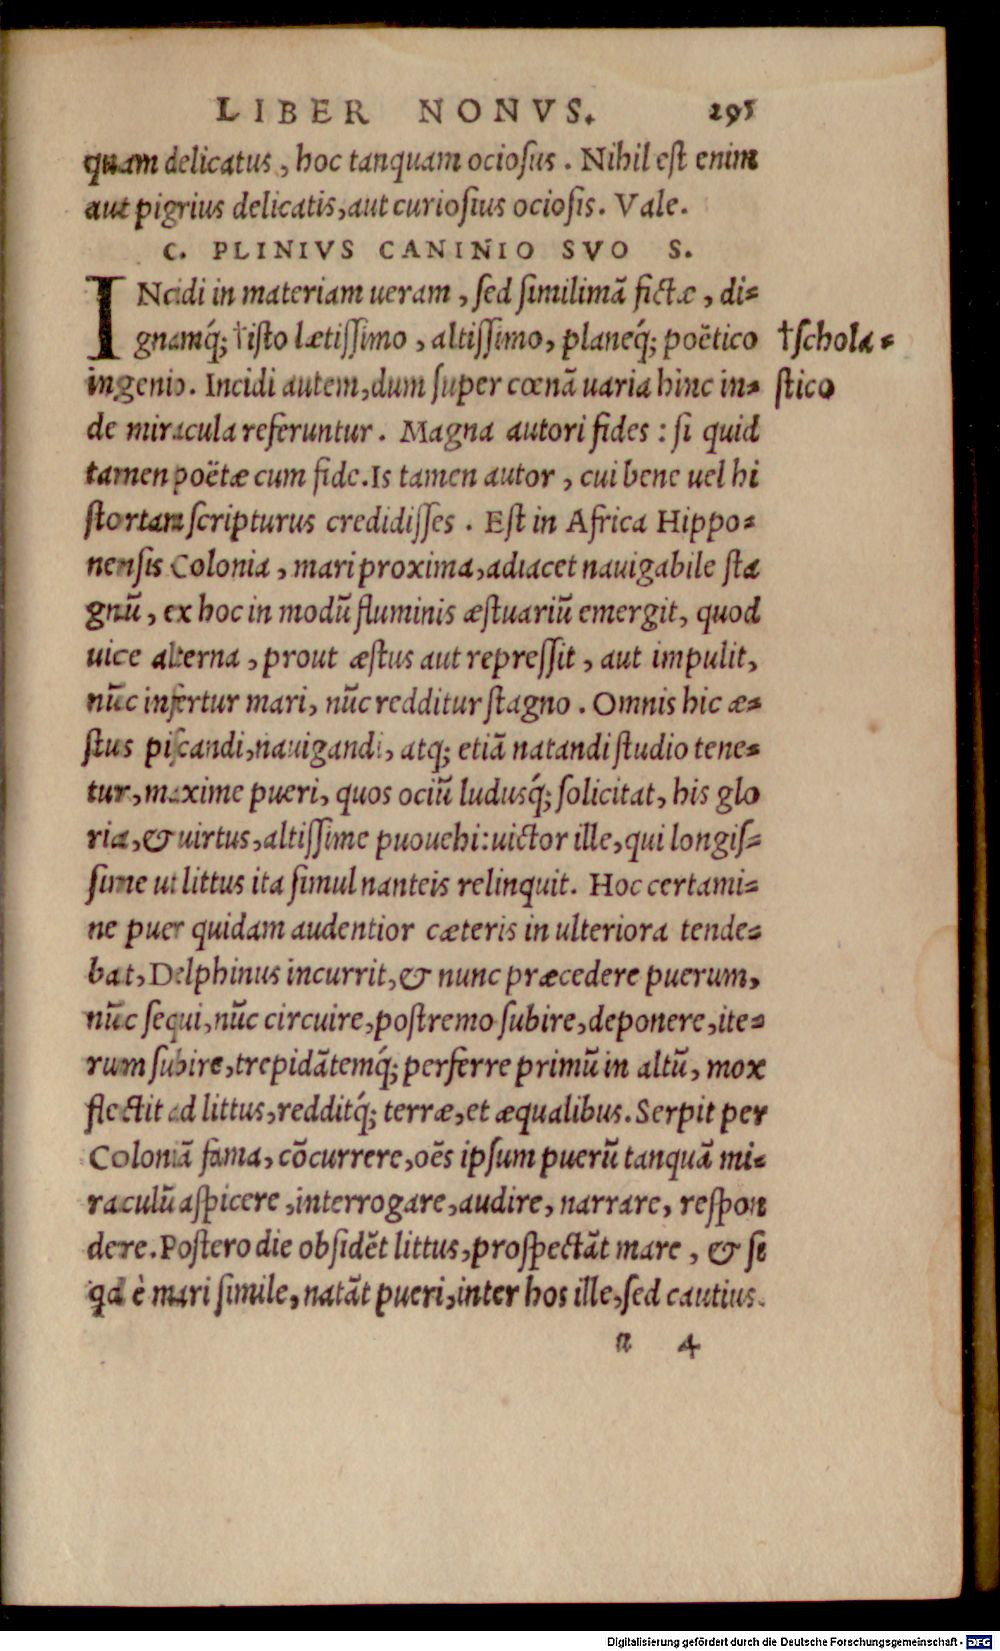 LIBER NONVS. 295
quam delicatus, hoc tanquam ociosus. Nihil est enim
aut pigrius delicatis, aut curiosius ociosis. Vale.
C. PLINIVS CANINIO SVO S.
INcidi in materiam ueram, sed similimā fictæ, di-
gnamq́; †isto lætissimo, altissimo, planeq́; poëtico †schola-
ingenio. Incidi autem, dum super cœnā uaria hinc in- stico
de miracula referuntur. Magna autori fides: si quid
tamen poëtæ cum fide. Is tamen autor, cui bene uel hi
storiam scripturus credidisses. Est in Africa Hippo-
nensis Colonia, mari proxima, adiacet nauigabile sta
gnū, ex hoc in modū fluminis æstuariū emergit, quod
uice alterna, prout æstus aut repressit, aut impulit,
nūc infertur mari, nūc redditur stagno. Omnis hic æ-
stus piscandi, nauigandi, atq; etiā natandi studio tene-
tur, maxime pueri, quos ociū ludusq́; solicitat, his glo
ria, & uirtus, altissime puouehi: uictor ille, qui longis-
sime ut littus ita simul nanteis relinquit. Hoc certami-
ne puer quidam audentior cæteris in ulteriora tende-
bat, Delphinus incurrit, & nunc præcedere puerum,
nūc sequi, nūc circuire, postremo subire, deponere, ite-
rum subire, trepidātemq́; perferre primū in altū, mox
flectit ad littus, redditq́; terræ, et æqualibus. Serpit per
Coloniā fama, cōcurrere, oēs ipsum puerū tanquā mi-
raculū aspicere, interrogare, audire, narrare, respon
dere. Postero die obsidēt littus, prospectāt mare, & si
qd è mari simile, natāt pueri, inter hos ille, sed cautius.
n 4
Digitalisierung gefördert durch die Deutsche Forschungsgemeinschaft - DFG